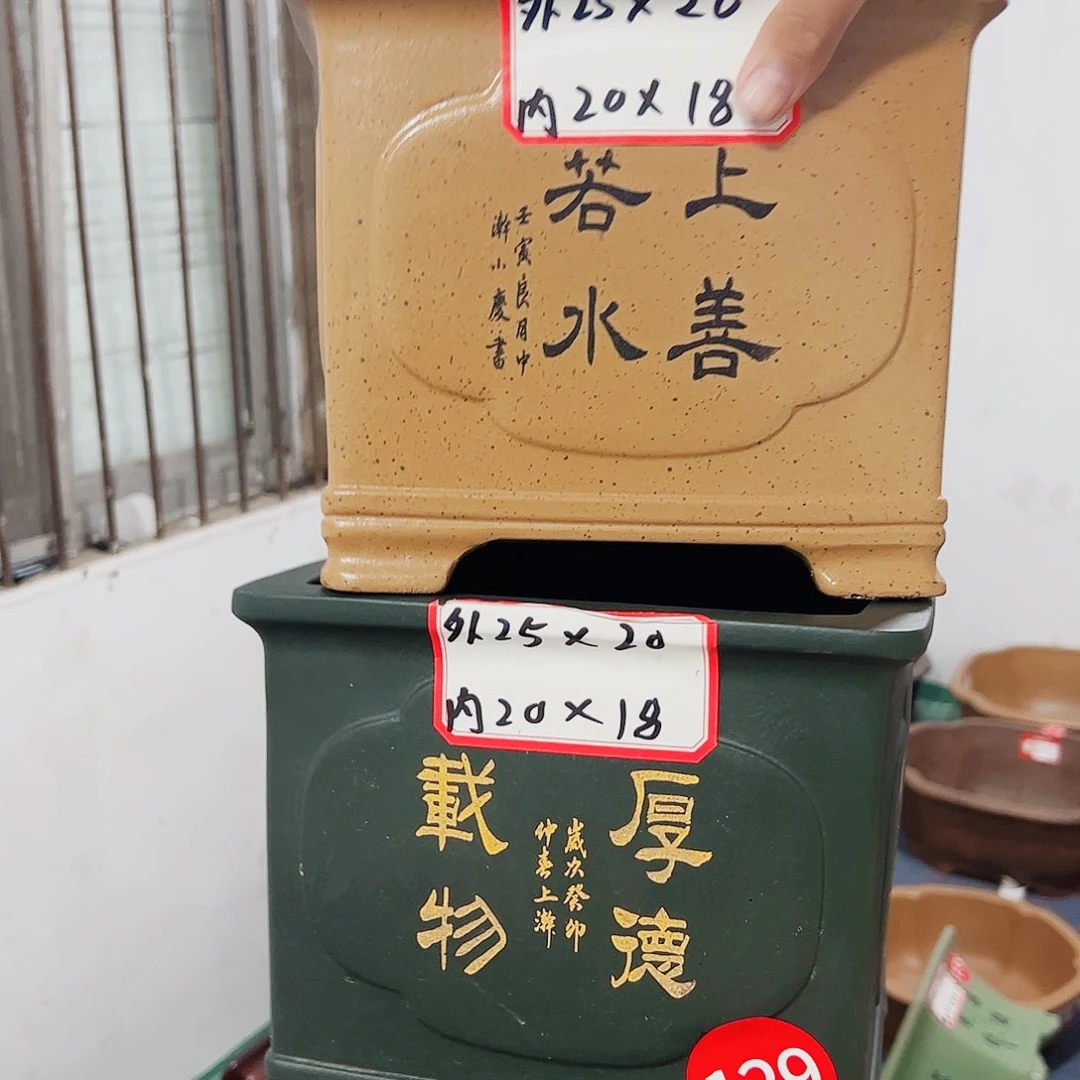 外25×20
内20×18
上善
若水
壬寅良月中
澣小慶書
外25×20
内20×18
厚德
載物
歲次癸卯
仲春上澣
129